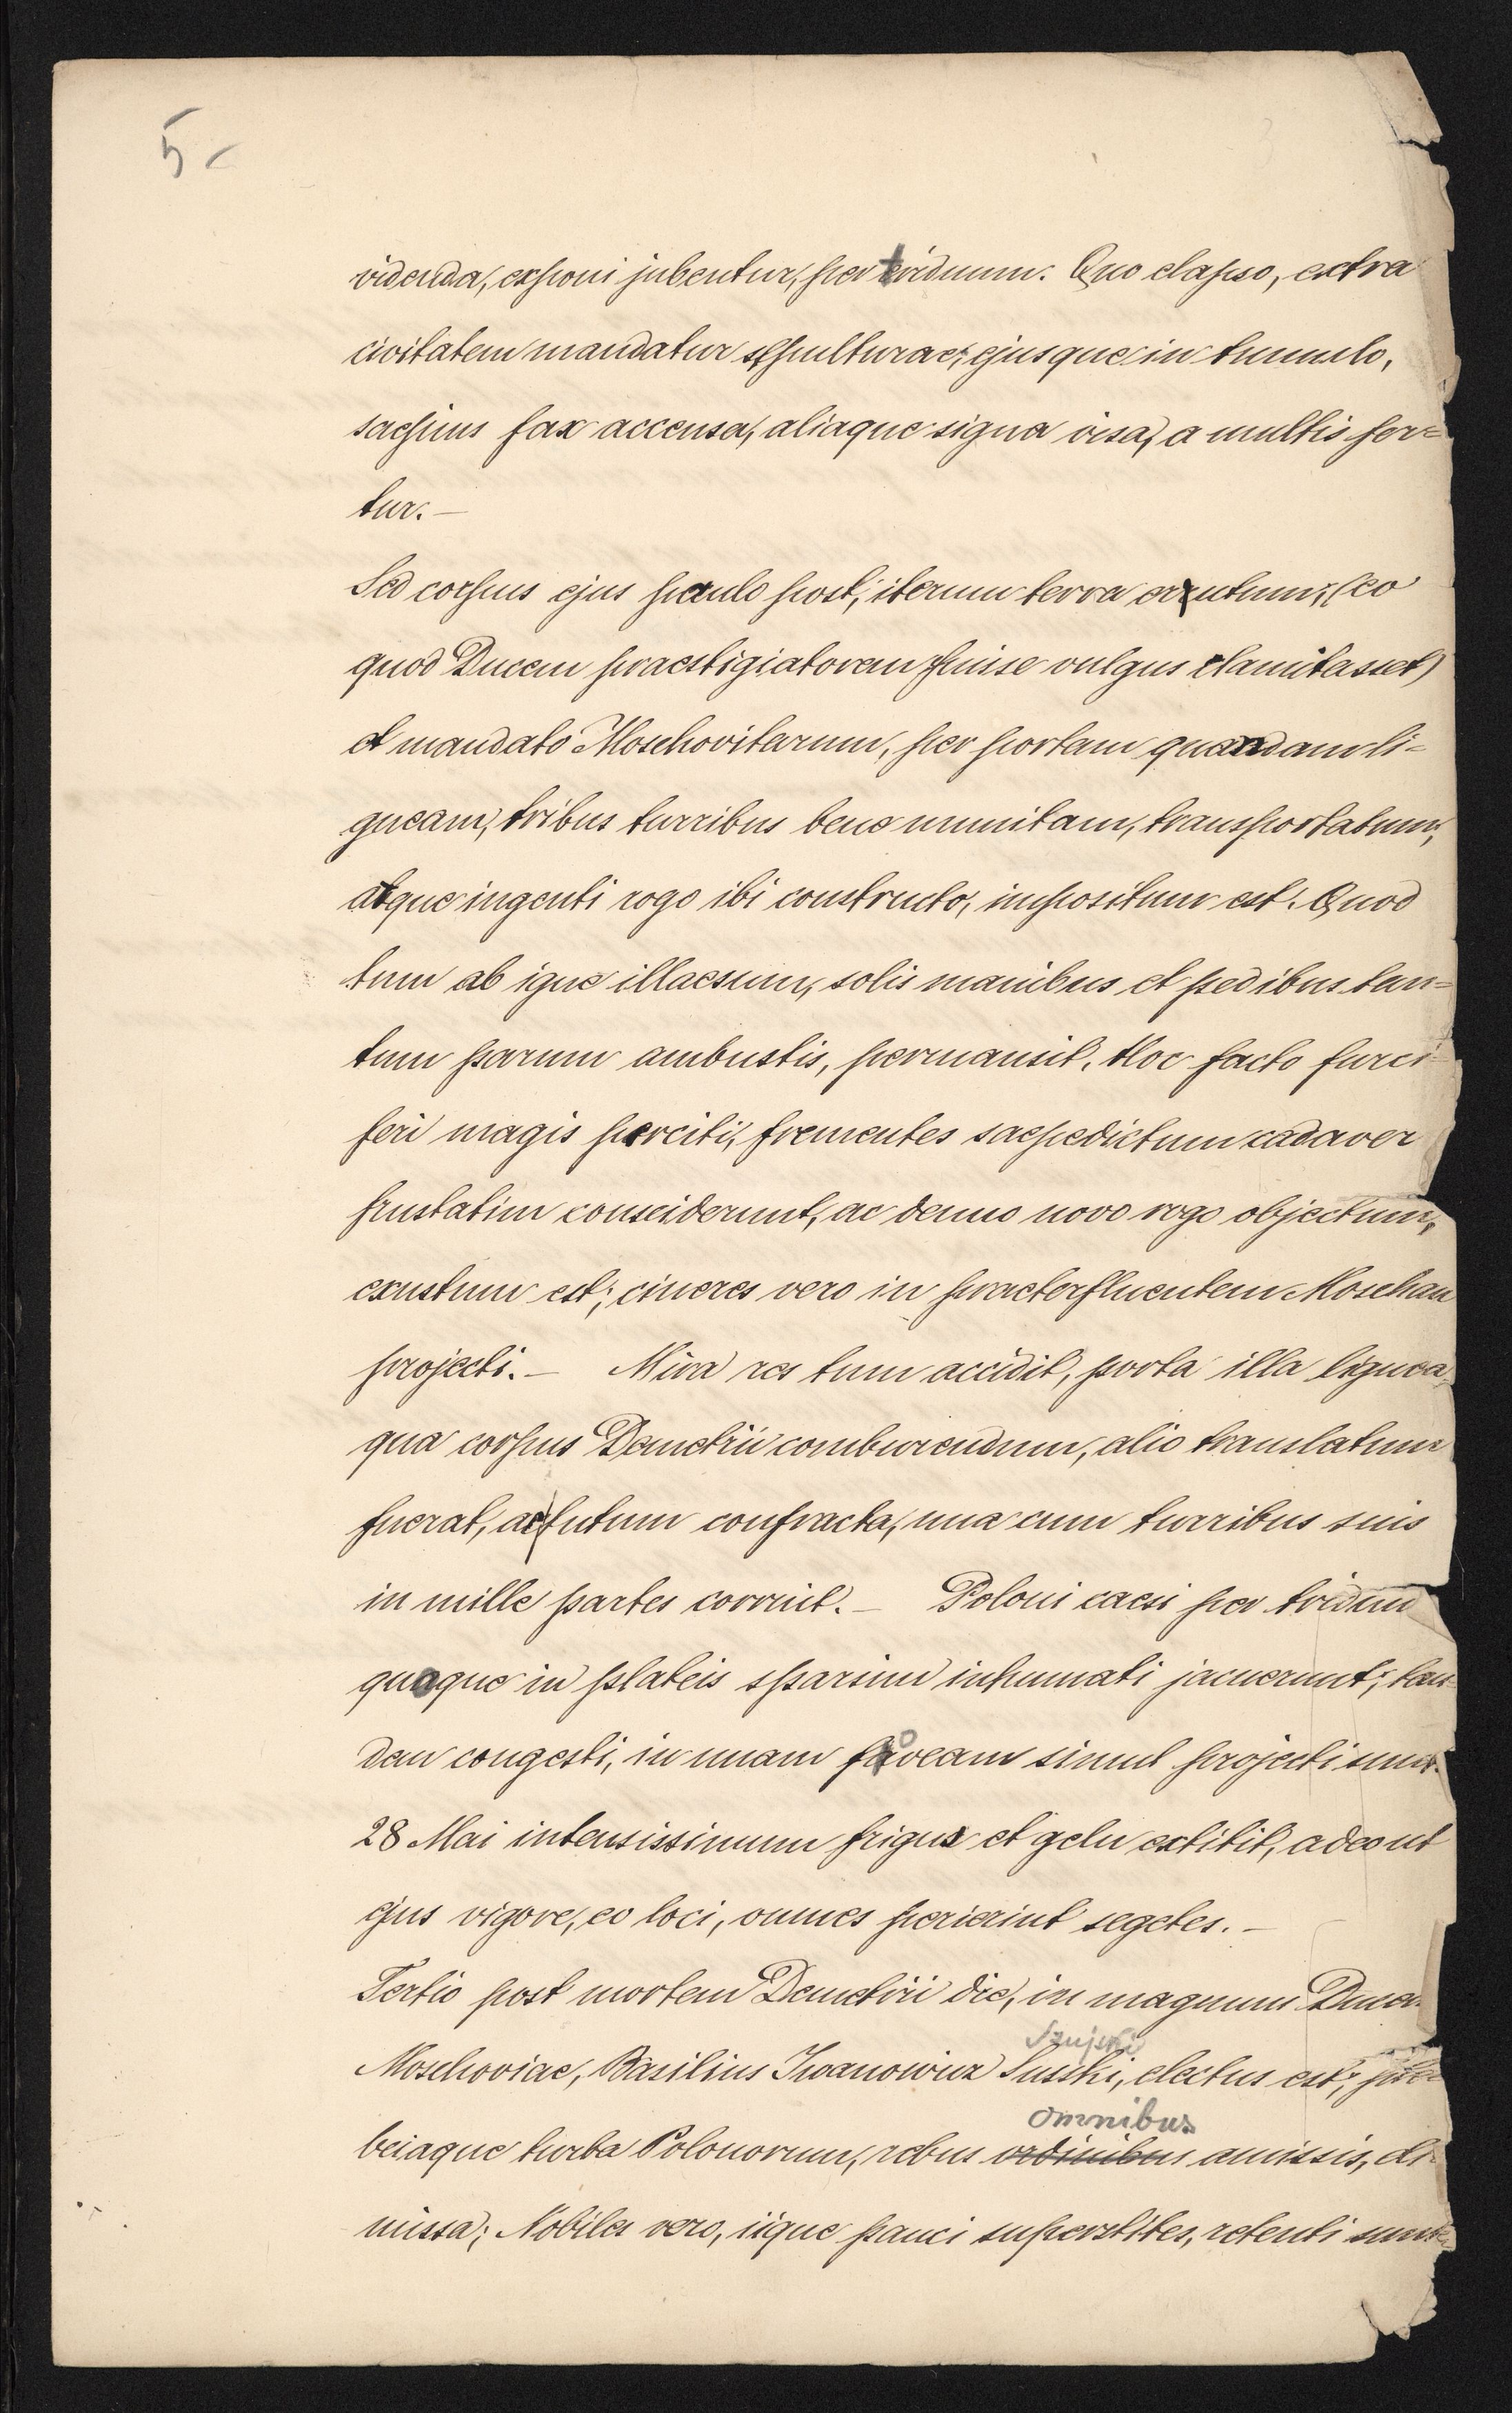 5-
videnda, exponi jubentur, per triduum. Quo elapso, extra
civitatem mandatur sepulturae; ejusque in tumulo,
saepius fax accensa, aliaque signa visa, a multis fer=
tur.—
Sed corpus ejus paulo post, iterum terra erutum, (eo
quod Ducem praestigiatorem fuisse vulgus clamitasset)
et mandato Moschovitarum, per portam quandam li=
gneam, tribus turribus bene munitam, transportatum,
atque ingenti rogo ibi constructo, impositum est. Quod
tum ab igne illaesum, solis manibus et pedibus tan=
tum parum ambustis, permansit. Hoc facto furci=
feri magis perciti, frementes saepedictum cadaver
frustatim consciderunt, ac denuo novo rogo objectum,
exustum est; cineres vero in praeterfluentem Moscham
projecti.— Mira res tum accidit, porta illa lignea,
qua corpus Demetrii comburendum, alio translatum
fuerat, actutum confracta, una cum turribus suis
in mille partes corruit.— Poloni caesi per triduum
quoque in plateis sparsim inhumati jacuerunt; tan=
dem congesti, in unam foveam simul projecti sunt.
28 Mai intensissimum frigus et gelu extitit, adeo ut
ejus vigore, eo loci, omnes perierint segetes.—
Tertio post mortem Demetrii die, in magnum Ducem
Szujski
Moschoviae, Basilius Iwanowicz Susski, electus est; ple=
omnibus
beiaque turba Polonorum, rebus ordinibus amissis, di=
missa; Nobiles vero, iique pauci superstites, retenti sunt